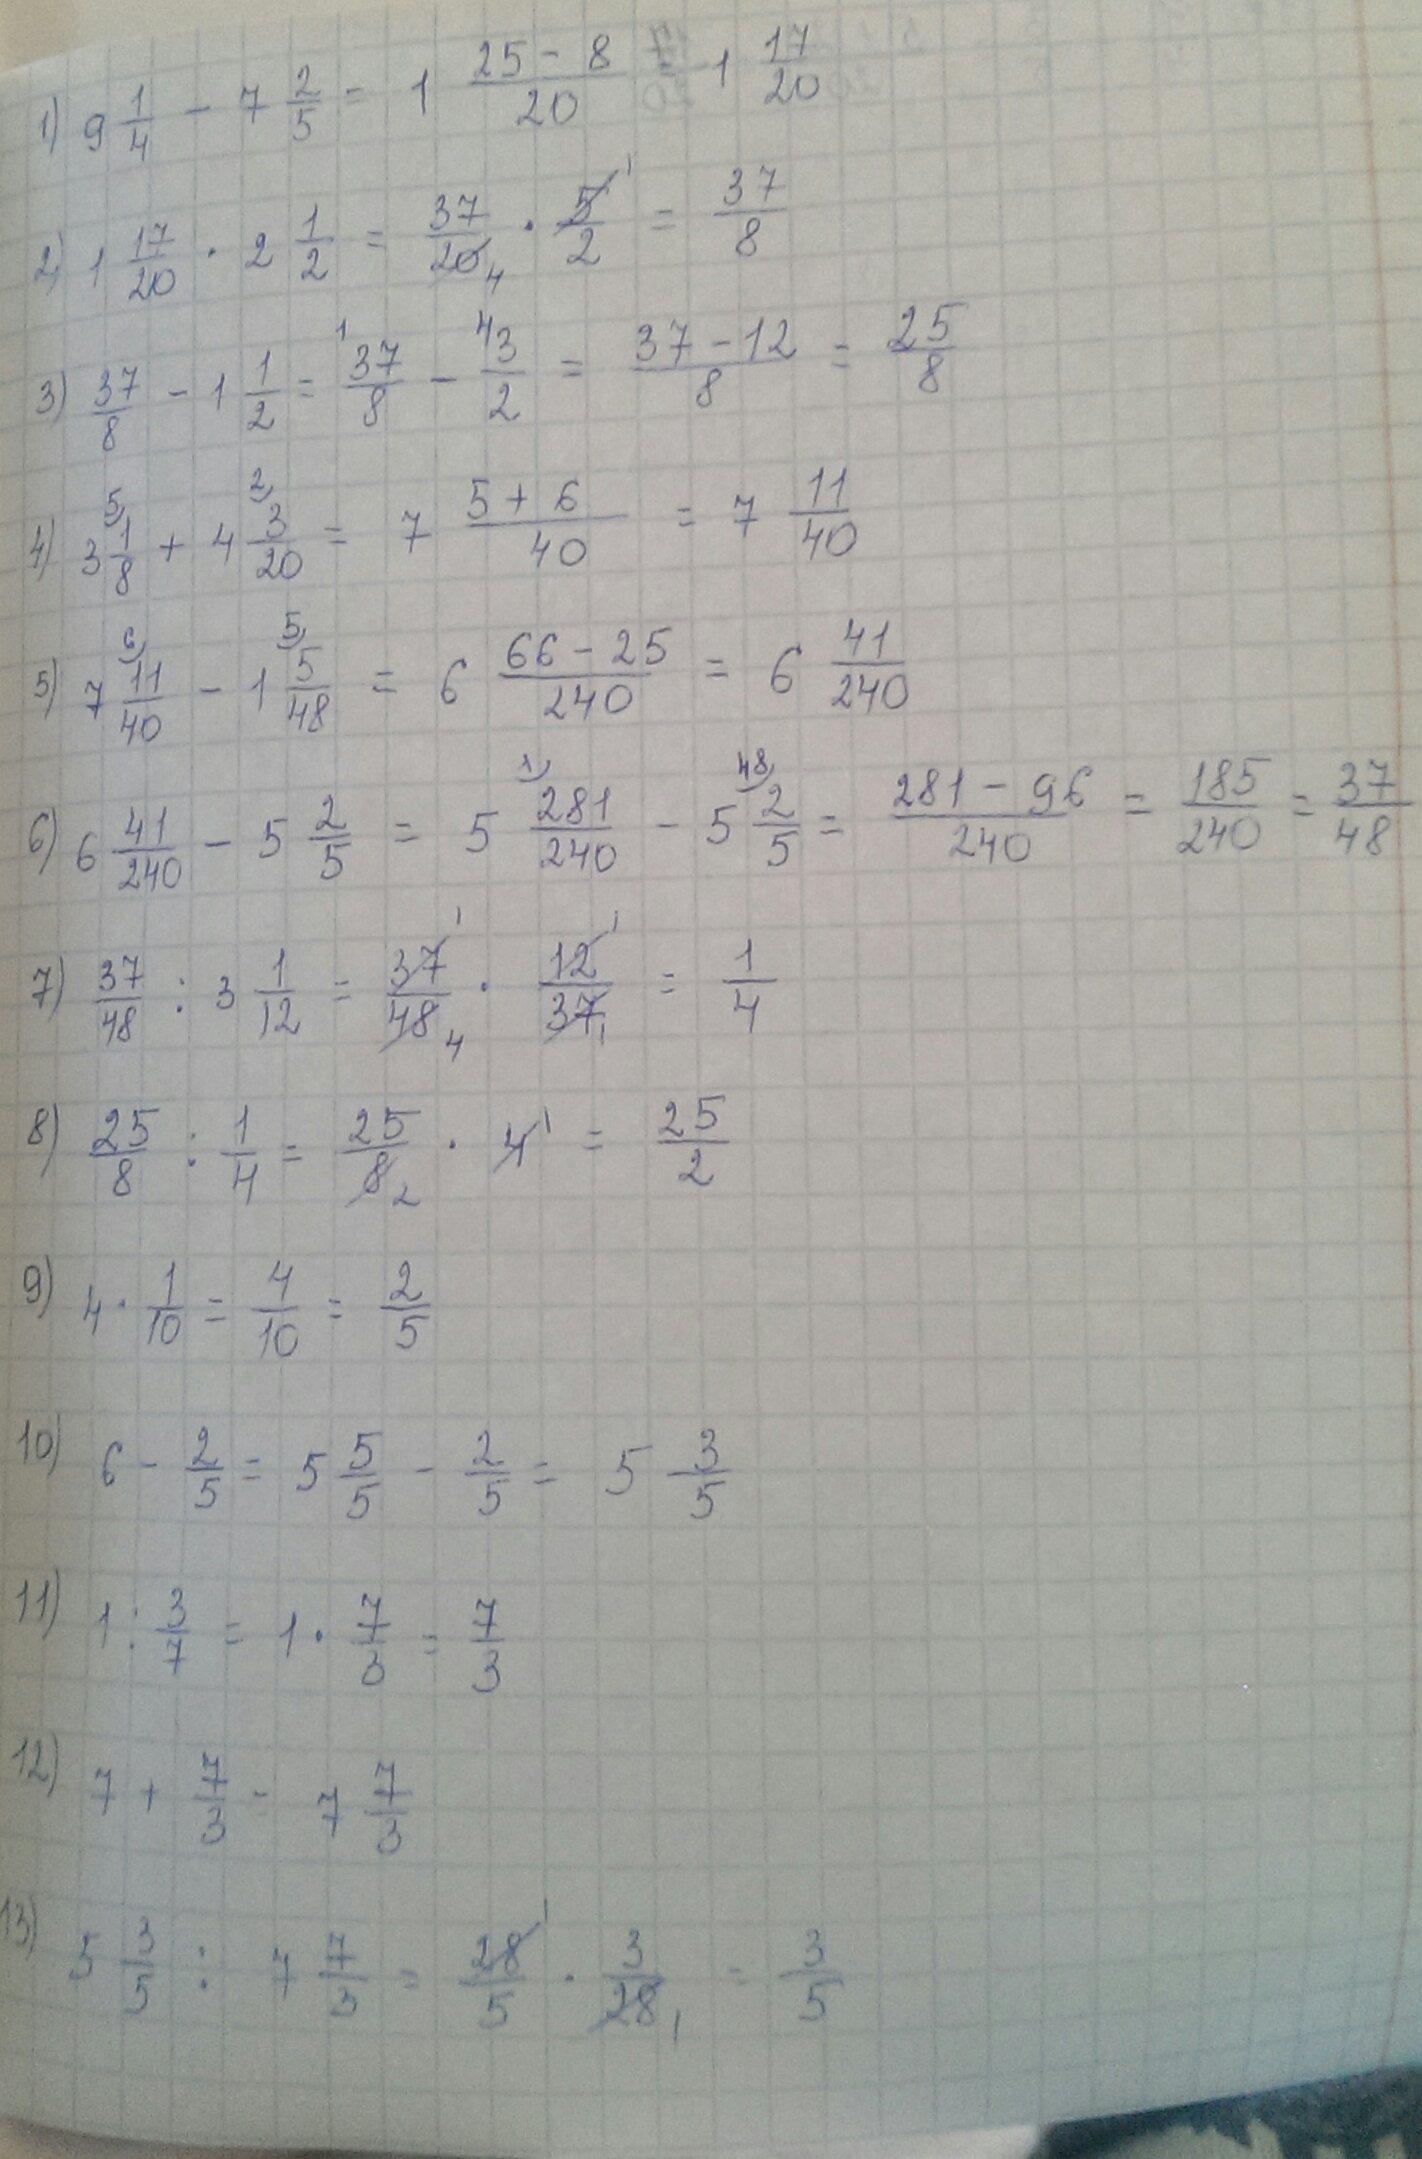 1) 9 1/4 - 7 2/5 = 1 (25 - 8)/20 = 1 17/20
2) 1 17/20 · 2 1/2 = 37/20 4 · 5 1/2 = 37/8
3) 37/8 - 1 1/2 = 1 37/8 - 4 3/2 = (37 - 12)/8 = 25/8
4) 3 5) 1/8 + 4 2) 3/20 = 7 (5 + 6)/40 = 7 11/40
5) 7 6) 11/40 - 1 5) 5/48 = 6 (66 - 25)/240 = 6 41/240
6) 6 41/240 - 5 2/5 = 5 1) 281/240 - 5 48) 2/5 = (281 - 96)/240 = 185/240 = 37/48
7) 37/48 : 3 1/12 = 37 1/48 4 · 12 1/37 1 = 1/4
8) 25/8 : 1/4 = 25/8 2 · 4 1 = 25/2
9) 4 · 1/10 = 4/10 = 2/5
10) 6 - 2/5 = 5 5/5 - 2/5 = 5 3/5
11) 1 : 3/7 = 1 · 7/3 = 7/3
12) 7 + 7/3 = 7 7/3
13) 5 3/5 : 7 7/3 = 28 1/5 · 3/28 1 = 3/5